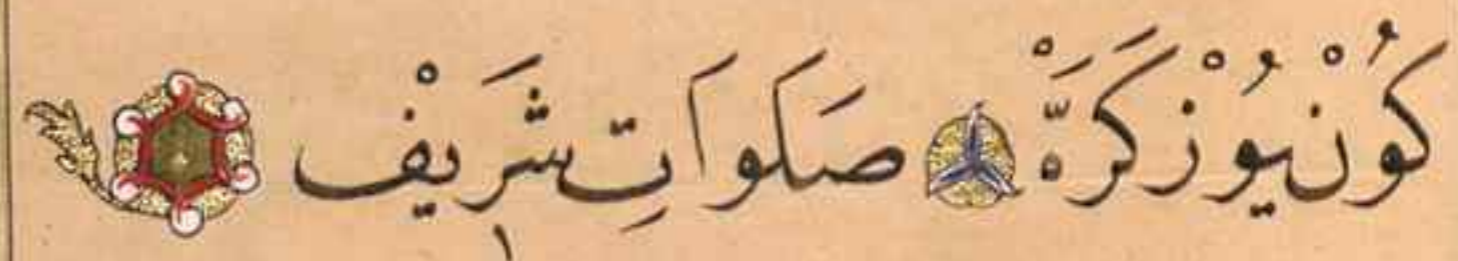 كُونْ يُوْزْ كَرَّهْ صَلَوَاتِ شَريْف